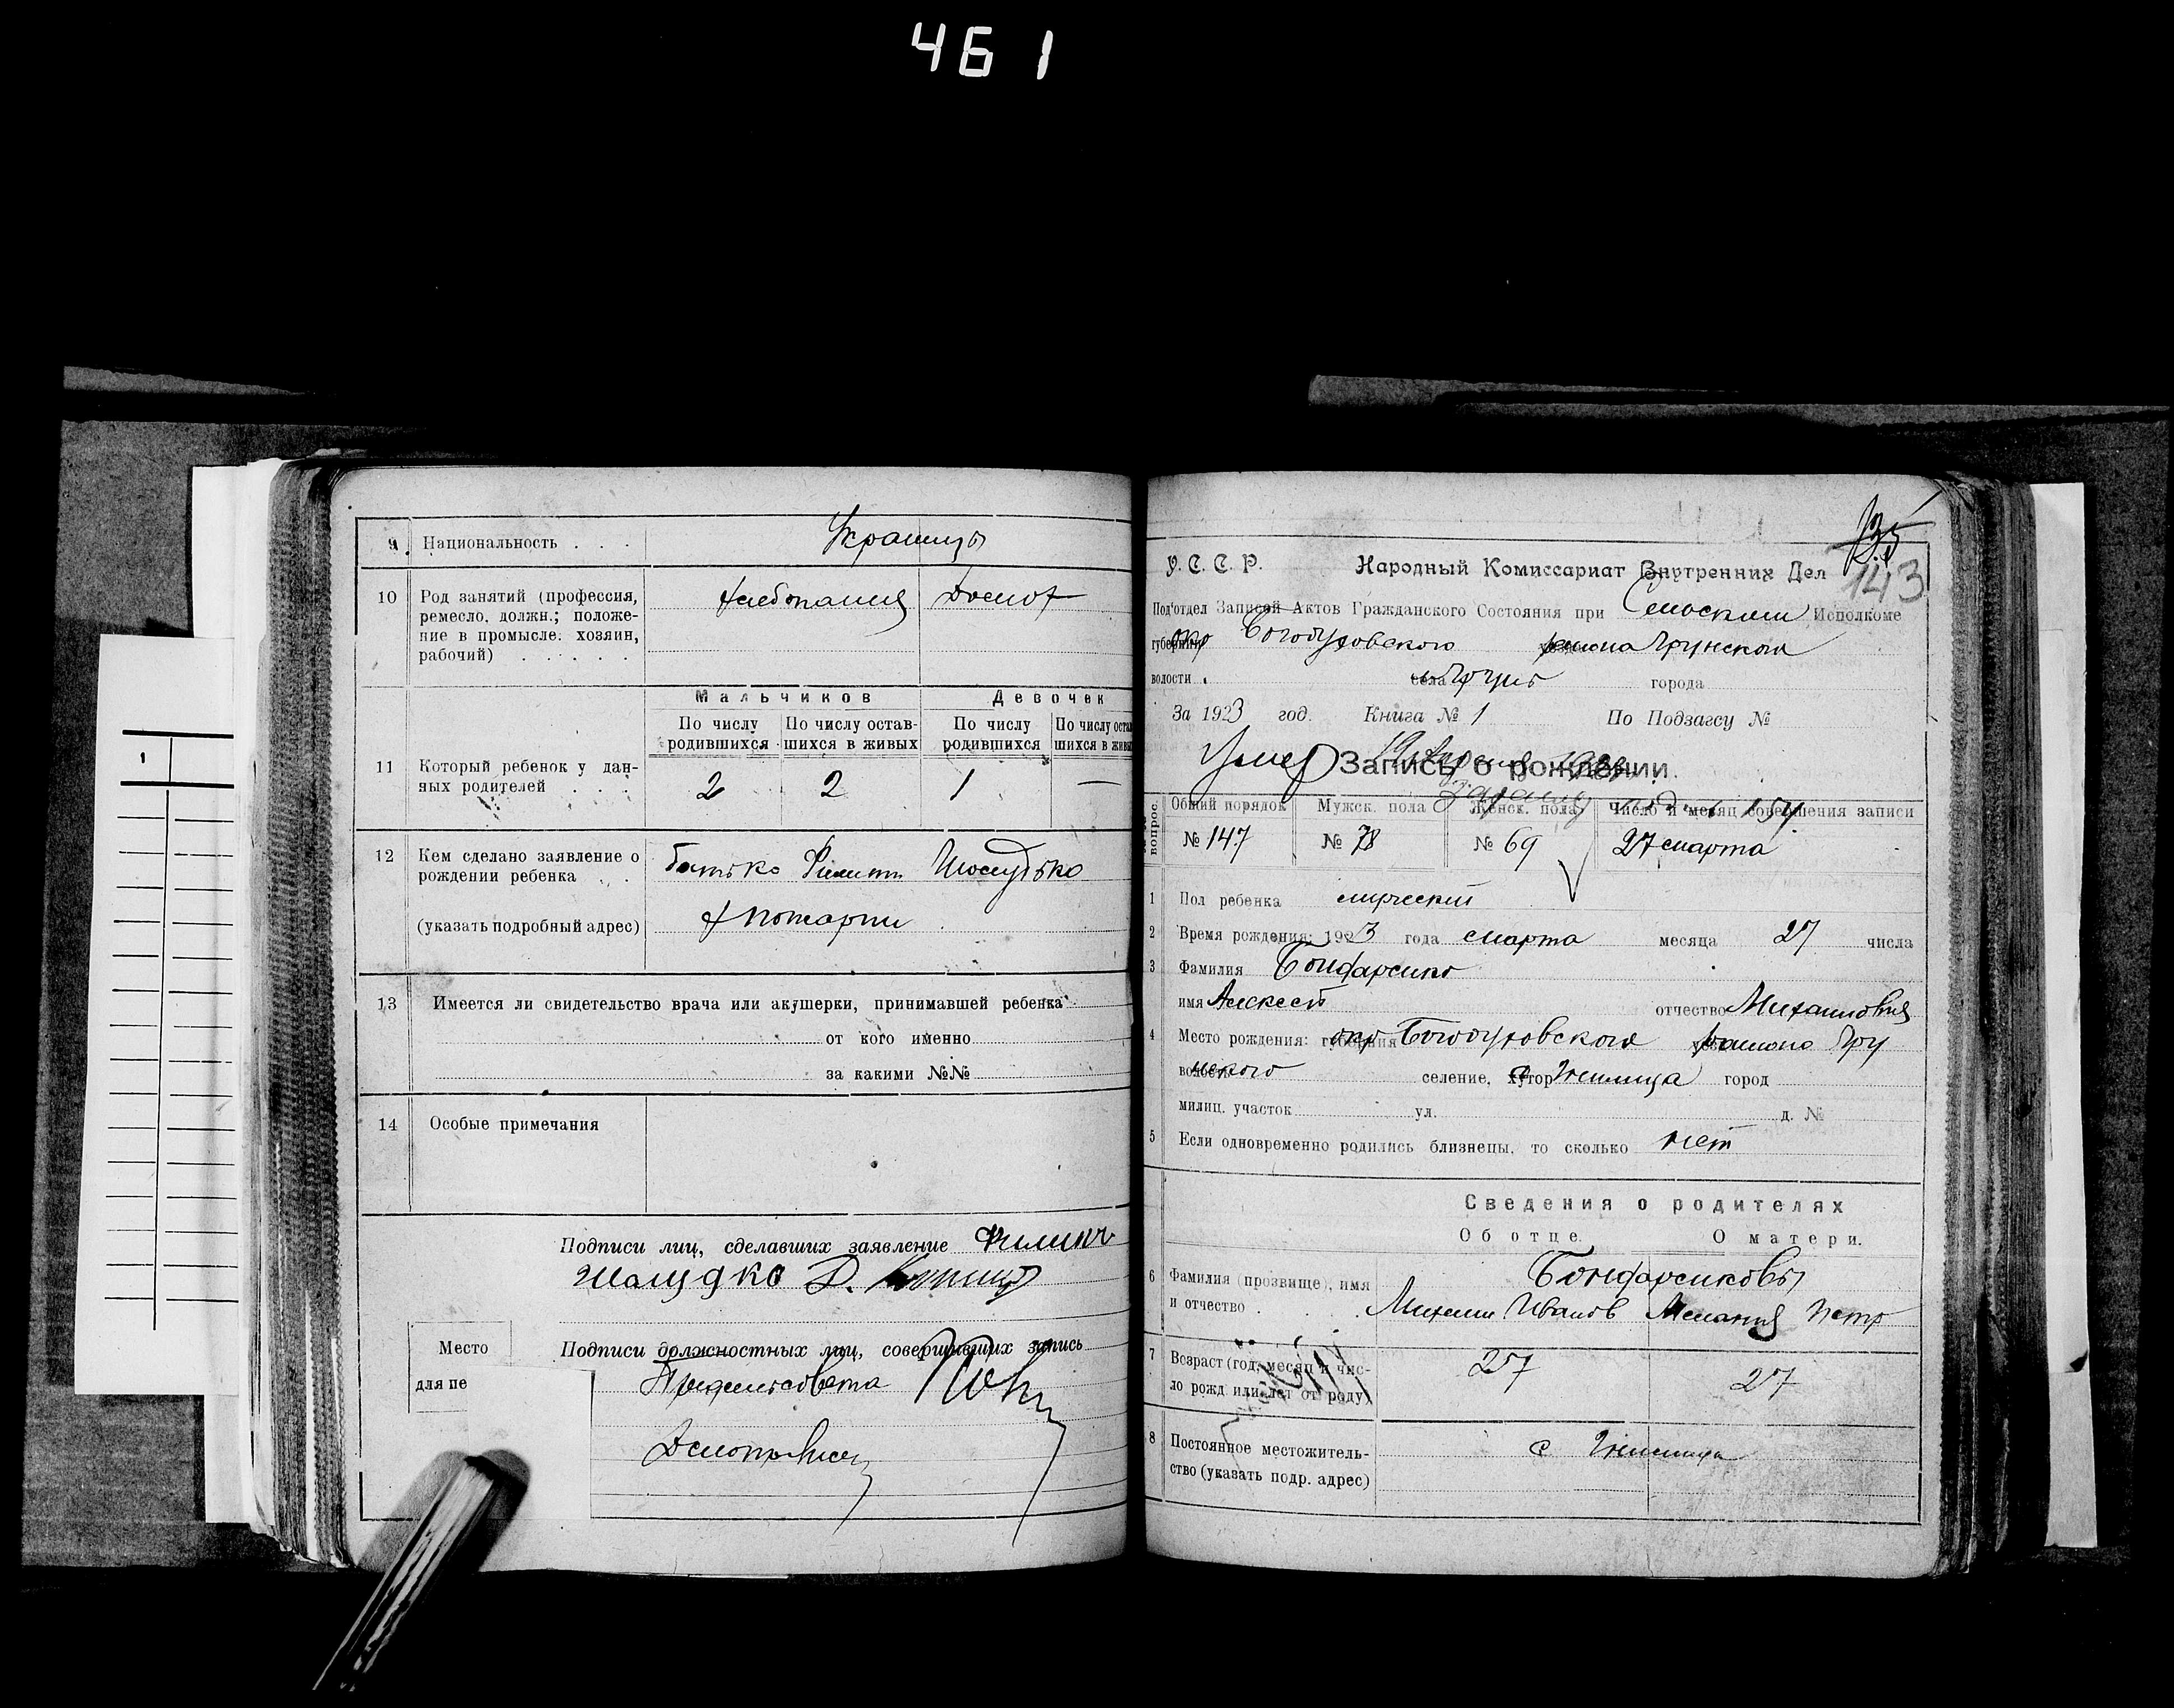 461
9 Национальность . . . Украинцы
10 Род занятий (профессия, ремесло, должн.; положение в промысле: хозяин, рабочий) . . . . . Домох
Мальчиков Девочек
По числу родившихся По числу остав-шихся в живых По числу родившихся По числу остав
шихся в живы
11 Который ребенок у дан-
ных родителей . . . 2 2 1 —
12 Кем сделано заявление о батько Филипп
рождении ребенка . .
(указать подробный адрес)
13 Имеется ли свидетельство врача или акушерки, принимавшей ребенка
от кого именно
за какими №№
14 Особые примечания
Подписи лиц, сделавших заявление Филипъ
Шолудко Д.
Место
для пе
Подписи должностных лиц, совершивших запись
Предсельсовета
Делопр
135
143
У. С. С. Р. Народный Комиссариат Внутренних Дел
Под'отдел Записей Актов Гражданского Состояния при Сельском Исполкоме
губернии окр Богодуховского района Грунского
волости села Грунь города
За 1923 год. Книга № 1 По Подзагсу №
Умер
Запись о рождении.
№№ вопрос. Общий порядок Мужск. пола Женск. пола Число и месяц совершения записи
№ 147 № 78 № 69 27 марта
1 Пол ребенка мужеский
2 Время рождения: 1923 года марта месяца 27 числа
3 Фамилия Бондаренко
имя Алексей отчество Михайловия
4 Место рождения: губерния окр Богодуховского района Гру
волость нского селение, хутор с город
милиц. участок ул. д. №
5 Если одновременно родились близнецы, то сколько нет
Сведения о родителях
Об отце. О матери.
6 Фамилия (прозвище), имя Бондаренковы
и отчество . . . . Михаил Иванов Мелания Петр
7 Возраст (год, месяц и чис- 27 27
ло рожд или лет от роду)
8 Постоянное местожитель- с
ство (указать подр. адрес)